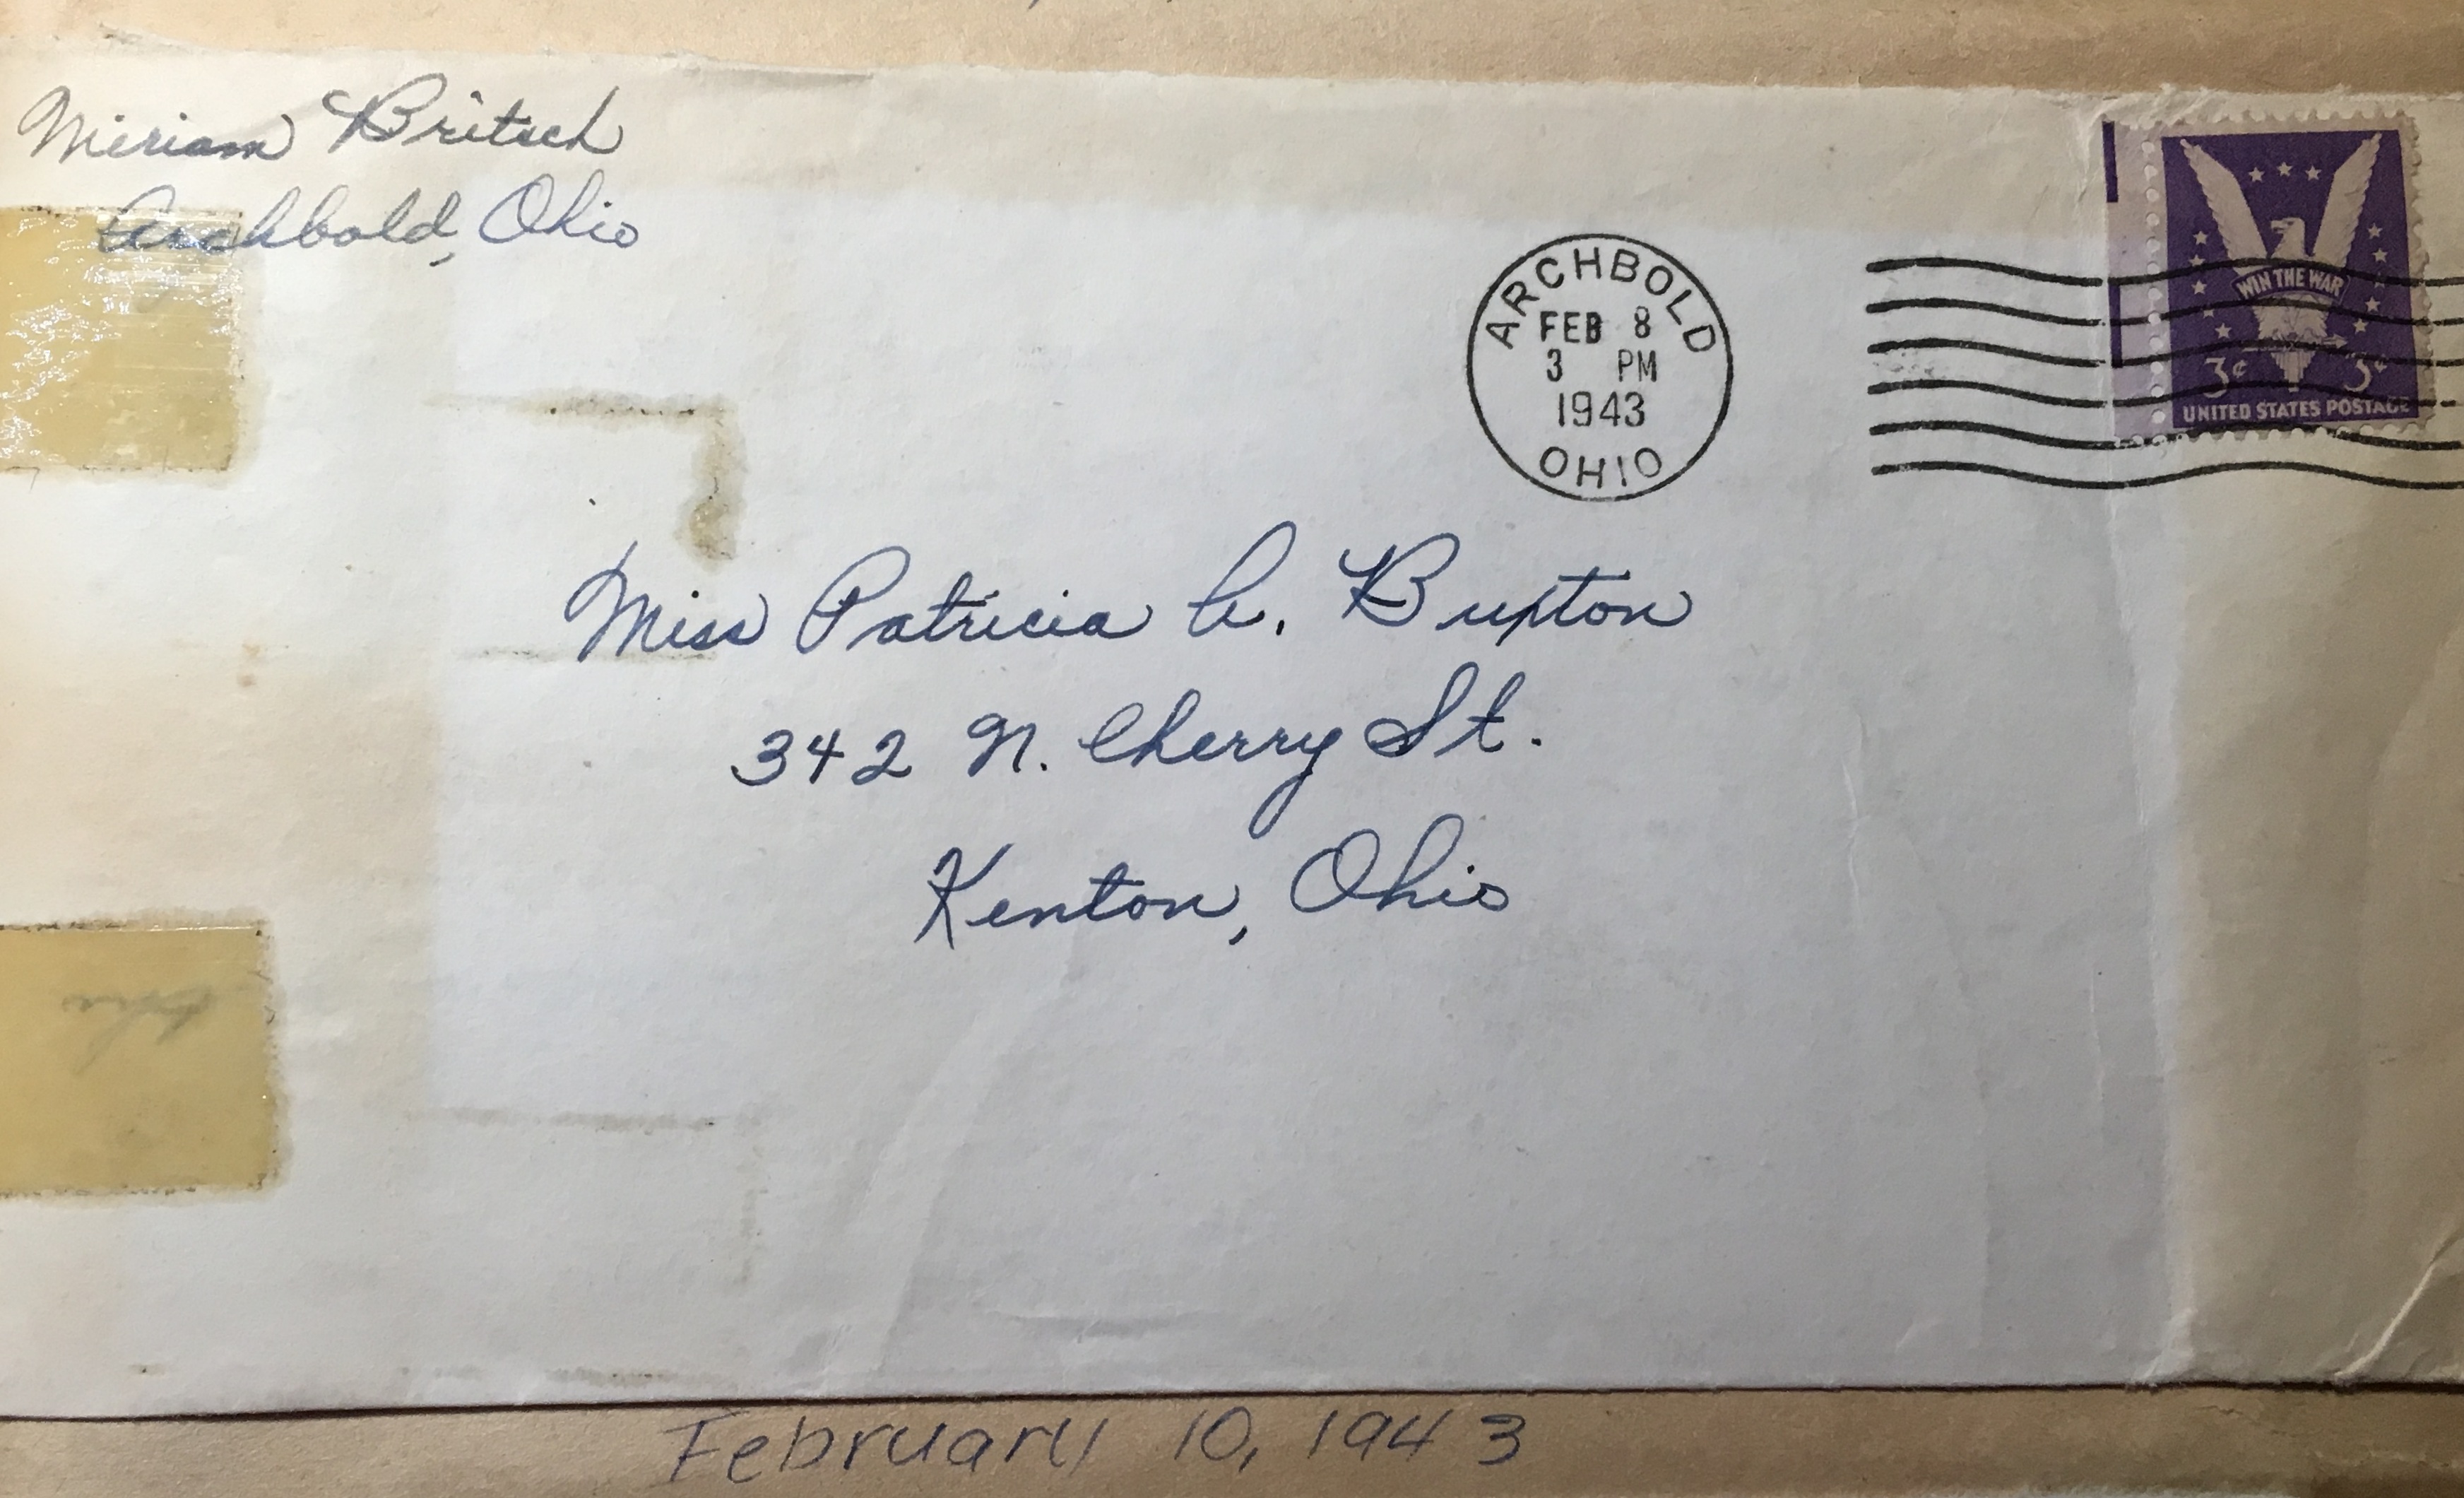 Miriam Britsch
Archbold, Ohio
ARCHBOLD
FEB 8
3 PM
1943
OHIO
WIN THE WAR
3¢ 3¢
UNITED STATES POSTAGE
Miss Patricia A. Buxton
342 N. Cherry St.
Kenton, Ohio
February 10, 1943